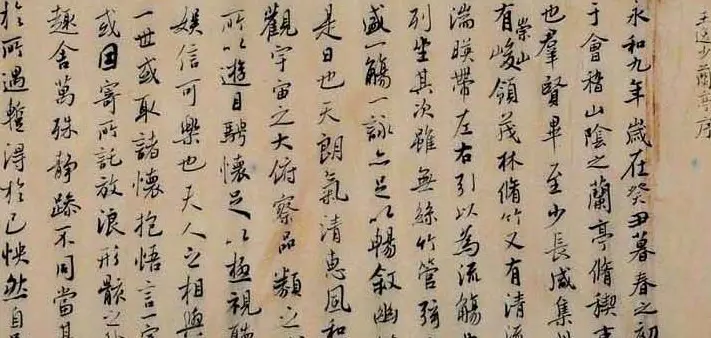 王逸少蘭亭序
永和九年歲在癸丑暮春之初
于會稽山陰之蘭亭脩禊事
也羣賢畢至少長咸集
有崇山峻領茂林脩竹又有清流
湍暎帶左右引以為流觴
列坐其次雖無絲竹管弦
盛一觴一詠亦足以暢敘幽
是日也天朗氣清惠風和
觀宇宙之大俯察品類之
所以遊目騁懷足以極視聽
娛信可樂也夫人之相與
一世或取諸懷抱悟言一室
或因寄所託放浪形骸之
趣舍萬殊靜躁不同當其
於所遇蹔得於己怏然自